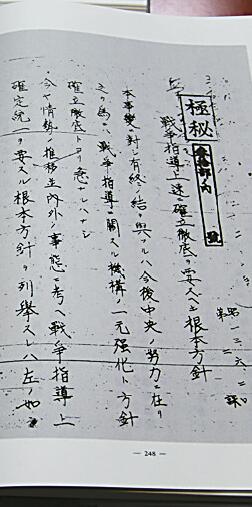 極秘
號
一三、六、二
第一課
戦争指導上速ニ確立徹底ヲ要スヘキ根本方針
本事変ニ対シ有終ノ結ヲ與フルハ今後中央ノ努力ニ在リ
之カ為ニハ戦争指導ニ関スル機構ノ一元強化ト方針
確立徹底トヨリ急ナルハナシ
今ヤ情勢ノ推移並内外ノ事態ニ考ヘ戦争指導上
確定統一ヲ要スル根本方針ヲ列挙スレハ左ノ如シ
— 248 —